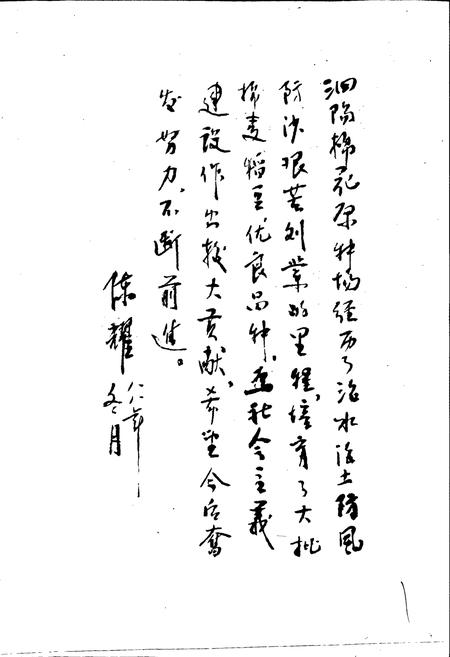 泗阳棉花原种场经历了治水治土防风
防沙艰苦创业的里程，培育了大批
棉麦稻豆优良品种，为社会主义
建设作出较大贡献。希望今后奋
发努力，不断前进。
陈耀
八八年
冬月